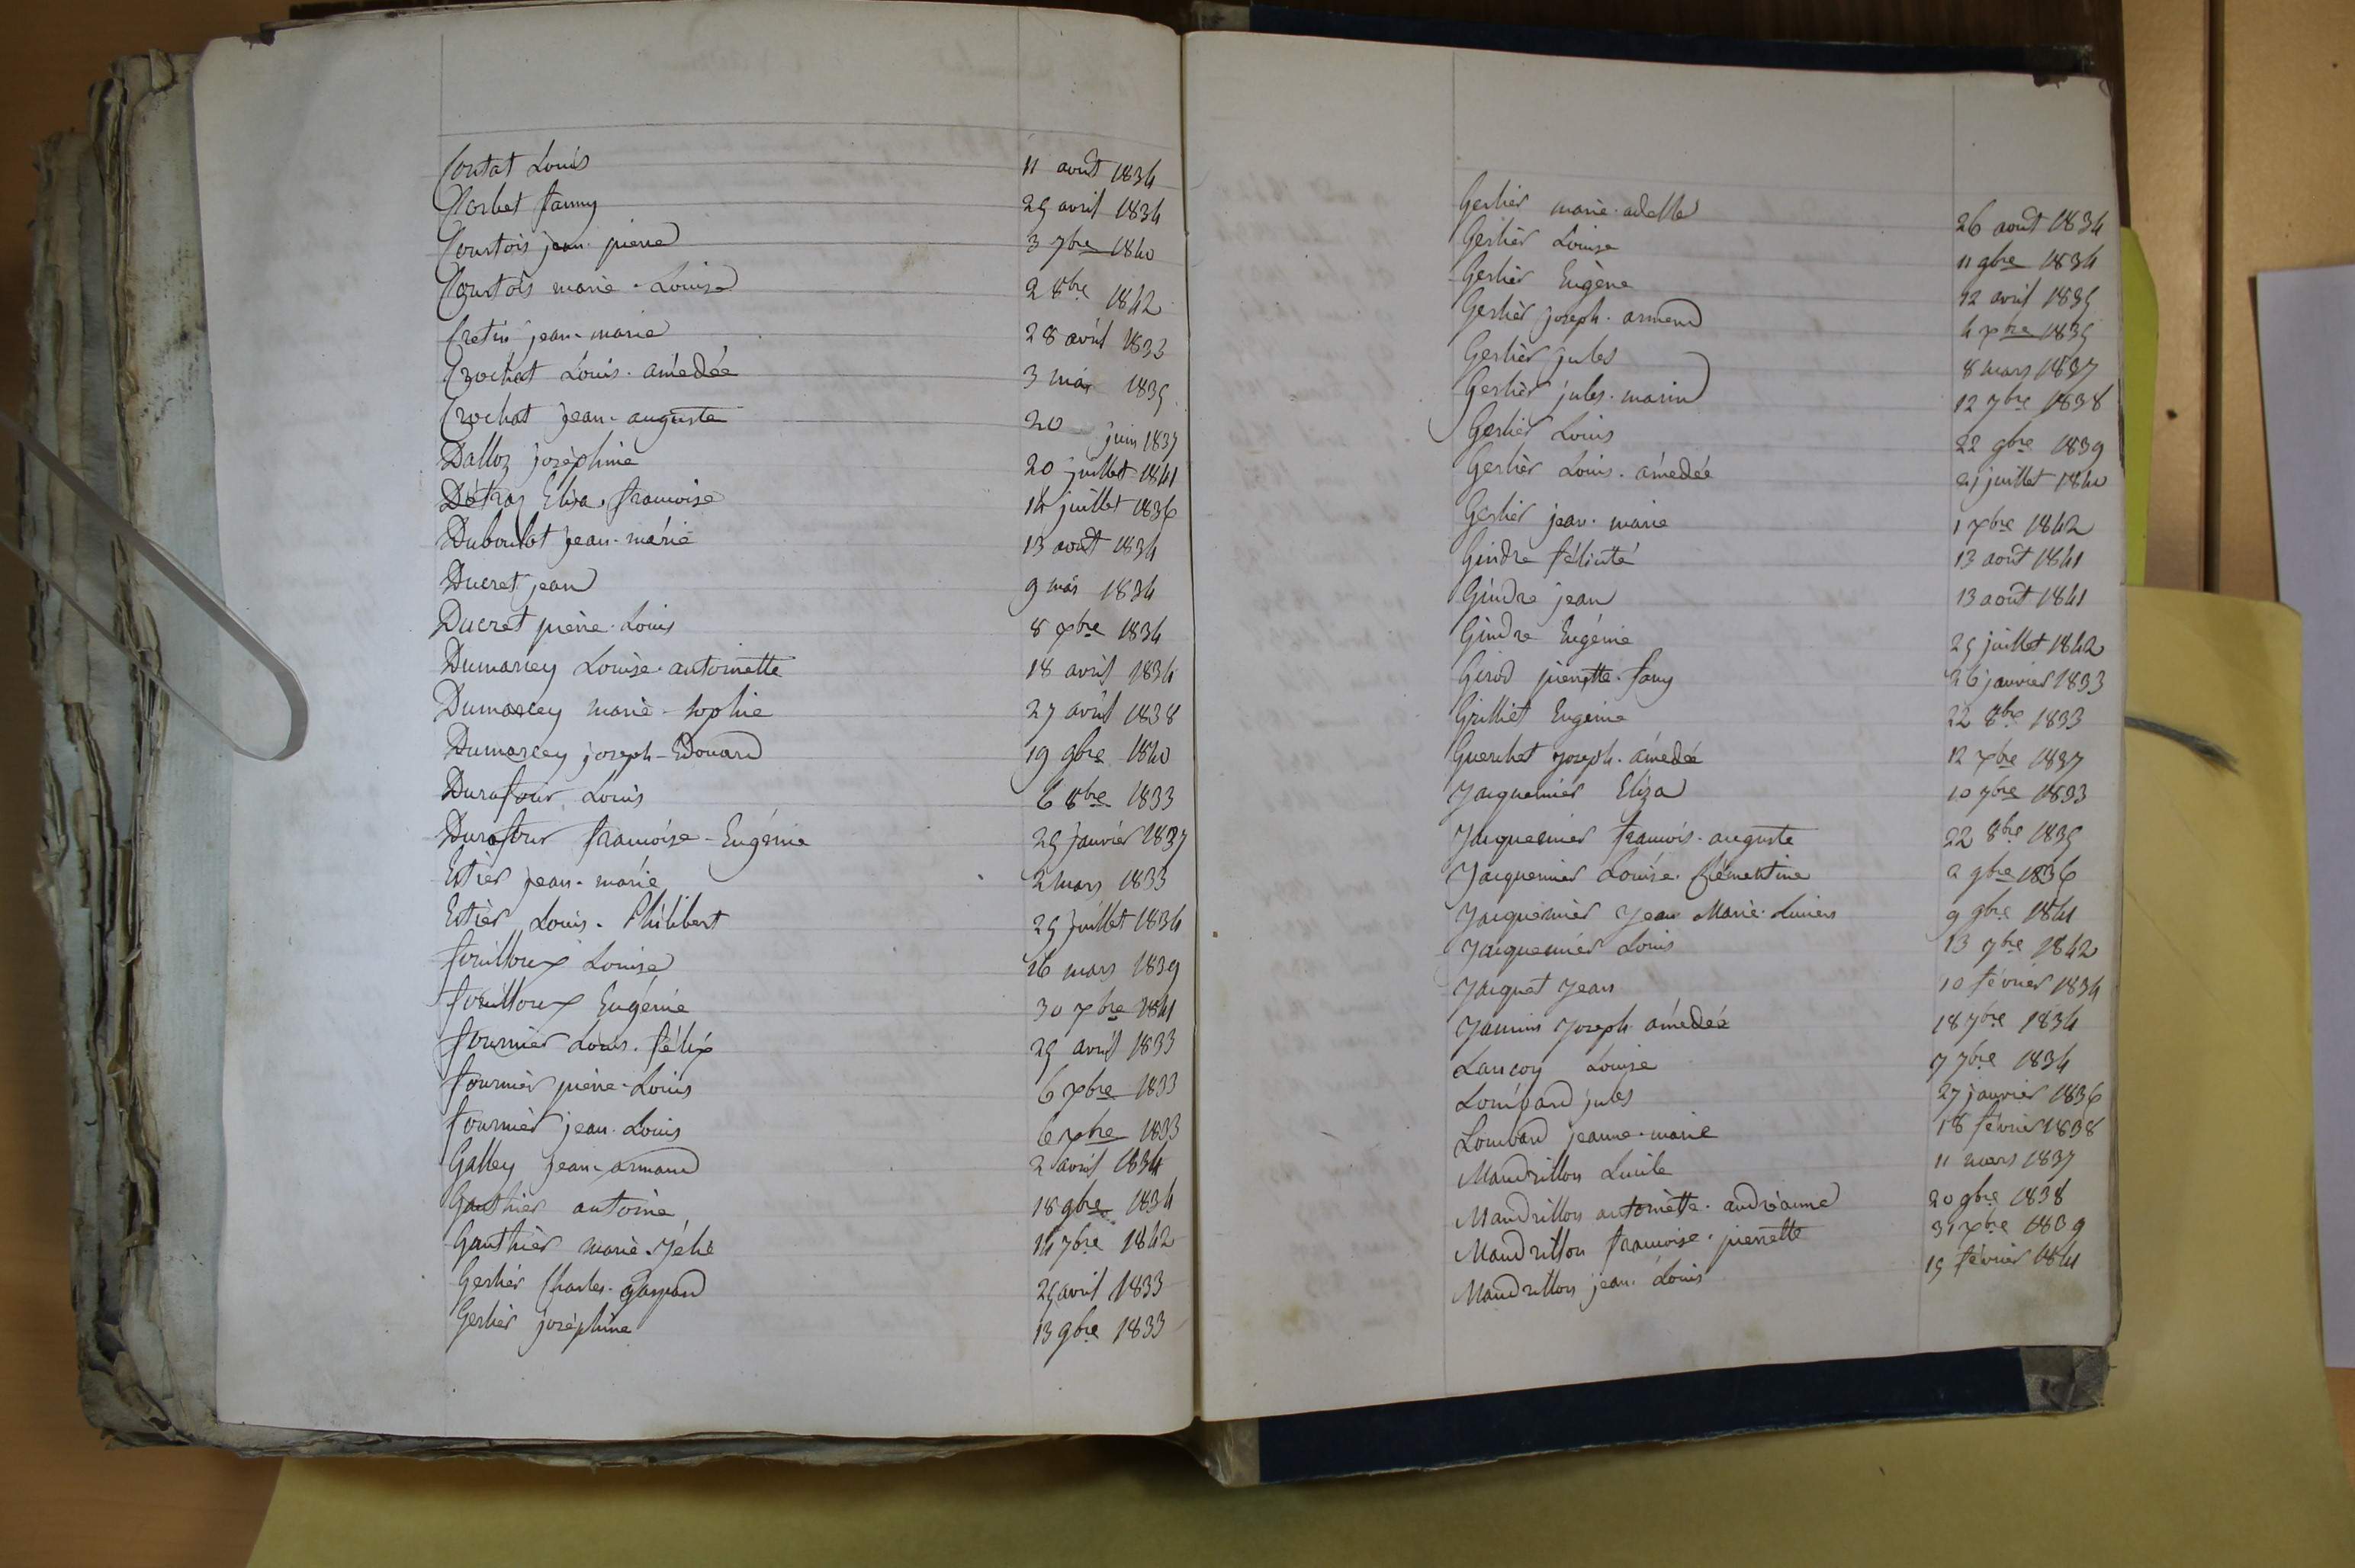 Contat Louis 11 août 1834
Corbet fanny 25 avril 1834
Courtois jean pierre 3 7bre 1840
Courtois marie-Louise 2 8bre 1842
Cretin jean-marie 28 avril 1833
Crochat Louis-amédée 3 mai 1835
Crochat jean-auguste 20 juin 1837
Dalloz joséphine 20 juillet 1841
Détraz Elisa, francoise 14 juillet 1836
Duboulot jean-marie 13 août 1834
Ducret jean 9 mai 1834
Ducret pierre-Louis 8 xbre 1834
Dumarcey Louise-antoinette 18 avril 1834
Dumarcey marie-sophie 27 avril 1838
Dumarcey joseph-Edouard 19 9bre 1840
Durafour Louis 6 8bre 1833
Durafour francoise-Eugénie 25 janvier 1837
Estier jean-marie 2 mars 1833
Estier Louis-Philibert 25 juillet 1834
fouilloux Louise 26 mars 1839
fouilloux Eugénie 30 xbre 1841
fournier Louis-félix 25 avril 1833
fournier pierre-Louis 6 xbre 1833
fournier jean-Louis 6 xbre 1833
Galley jean-armand 2 avril 1834
Gauthier antoine 18 9bre 1834
Gauthier marie-Zélie 14 7bre 1842
Gerlier Charles-gaspard 25 avril 1833
Gerlier joséphine 13 9bre 1833
Gerlier marie-adelle 26 août 1834
Gerlier Louise 11 9bre 1834
Gerlier Eugène 12 avril 1835
Gerlier joseph-armend 4 xbre 1835
Gerlier jules 8 mars 1837
Gerlier jules-marin 12 7bre 1838
Gerlier Louis 22 9bre 1839
Gerlier Louis-amédée 21 juillet 1840
Gerlier jean-marie 1 xbre 1842
Gindre félicité 13 août 1841
Gindre jean 13 août 1841
Gindre Eugénie 25 juillet 1842
Girod pierrette-fany 26 janvier 1833
Grilliet Eugénie 22 8bre 1833
Guerchet Joseph-amédée 12 xbre 1837
Jacquemier Eliza 10 7bre 1833
Jacquemier francois-auguste 22 8bre 1835
Jacquemier Louise-Clémentine 2 9bre 1836
Jacquemier Jean Marie-Lucien 9 9bre 1841
Jacquemier Louis 13 7bre 1842
Jacquet Jean 10 février 1834
Jannin Joseph amédée 18 7bre 1834
Lancoy Louise 7 7bre 1834
Lombard jules 27 janvier 1836
Lombard jeanne-marie 18 février 1838
Mandrillon Lucile 11 mars 1837
Mandrillon antoinette-andréanne 20 9bre 1838
Mandrillon francoise-pierrette 31 xbre 1839
Mandrillon jean-Louis 15 février 1841